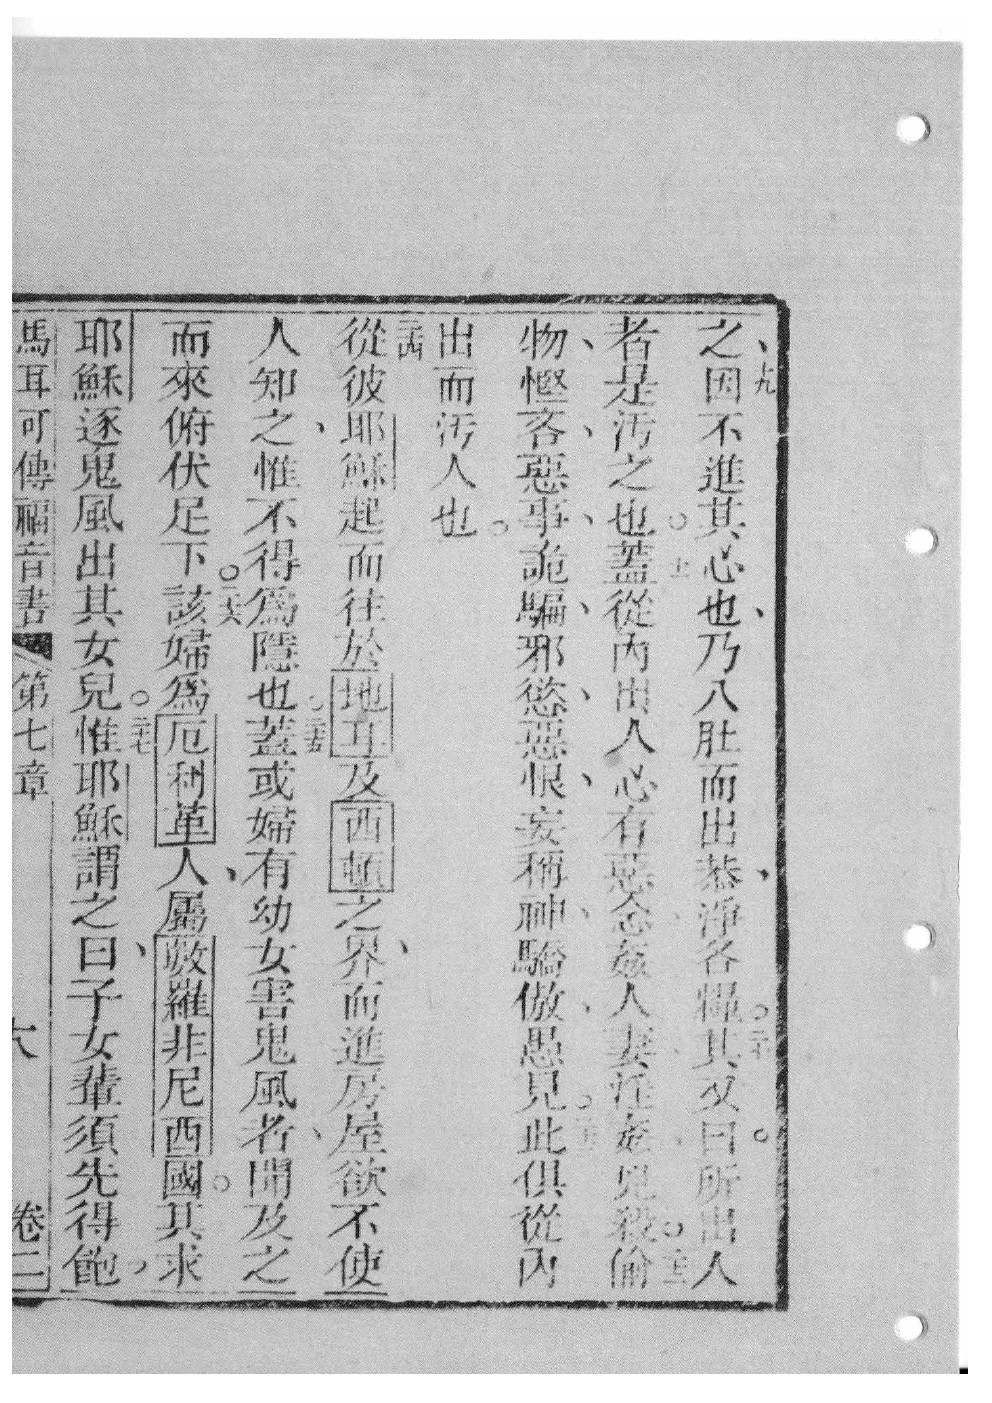 之因不進其心也乃入肚而出恭淨各糧其又曰所出人
者是汚之也蓋從內出人心有惡念姦人妻淫姦兇殺偷
物慳吝惡事詭騙邪慾惡恨妄稱神驕傲愚見此俱從內
出而汚人也
從彼耶穌起而往於地耳及西頓之界而進房屋欲不使
人知之惟不得爲隱也蓋或婦有幼女害鬼風者聞及之
而來俯伏足下該婦爲厄利革人屬數羅非尼西國其求
耶穌逐鬼風出其女兒惟耶穌謂之曰子女輩須先得飽
馬耳可傳福音書 第七章 六 卷二